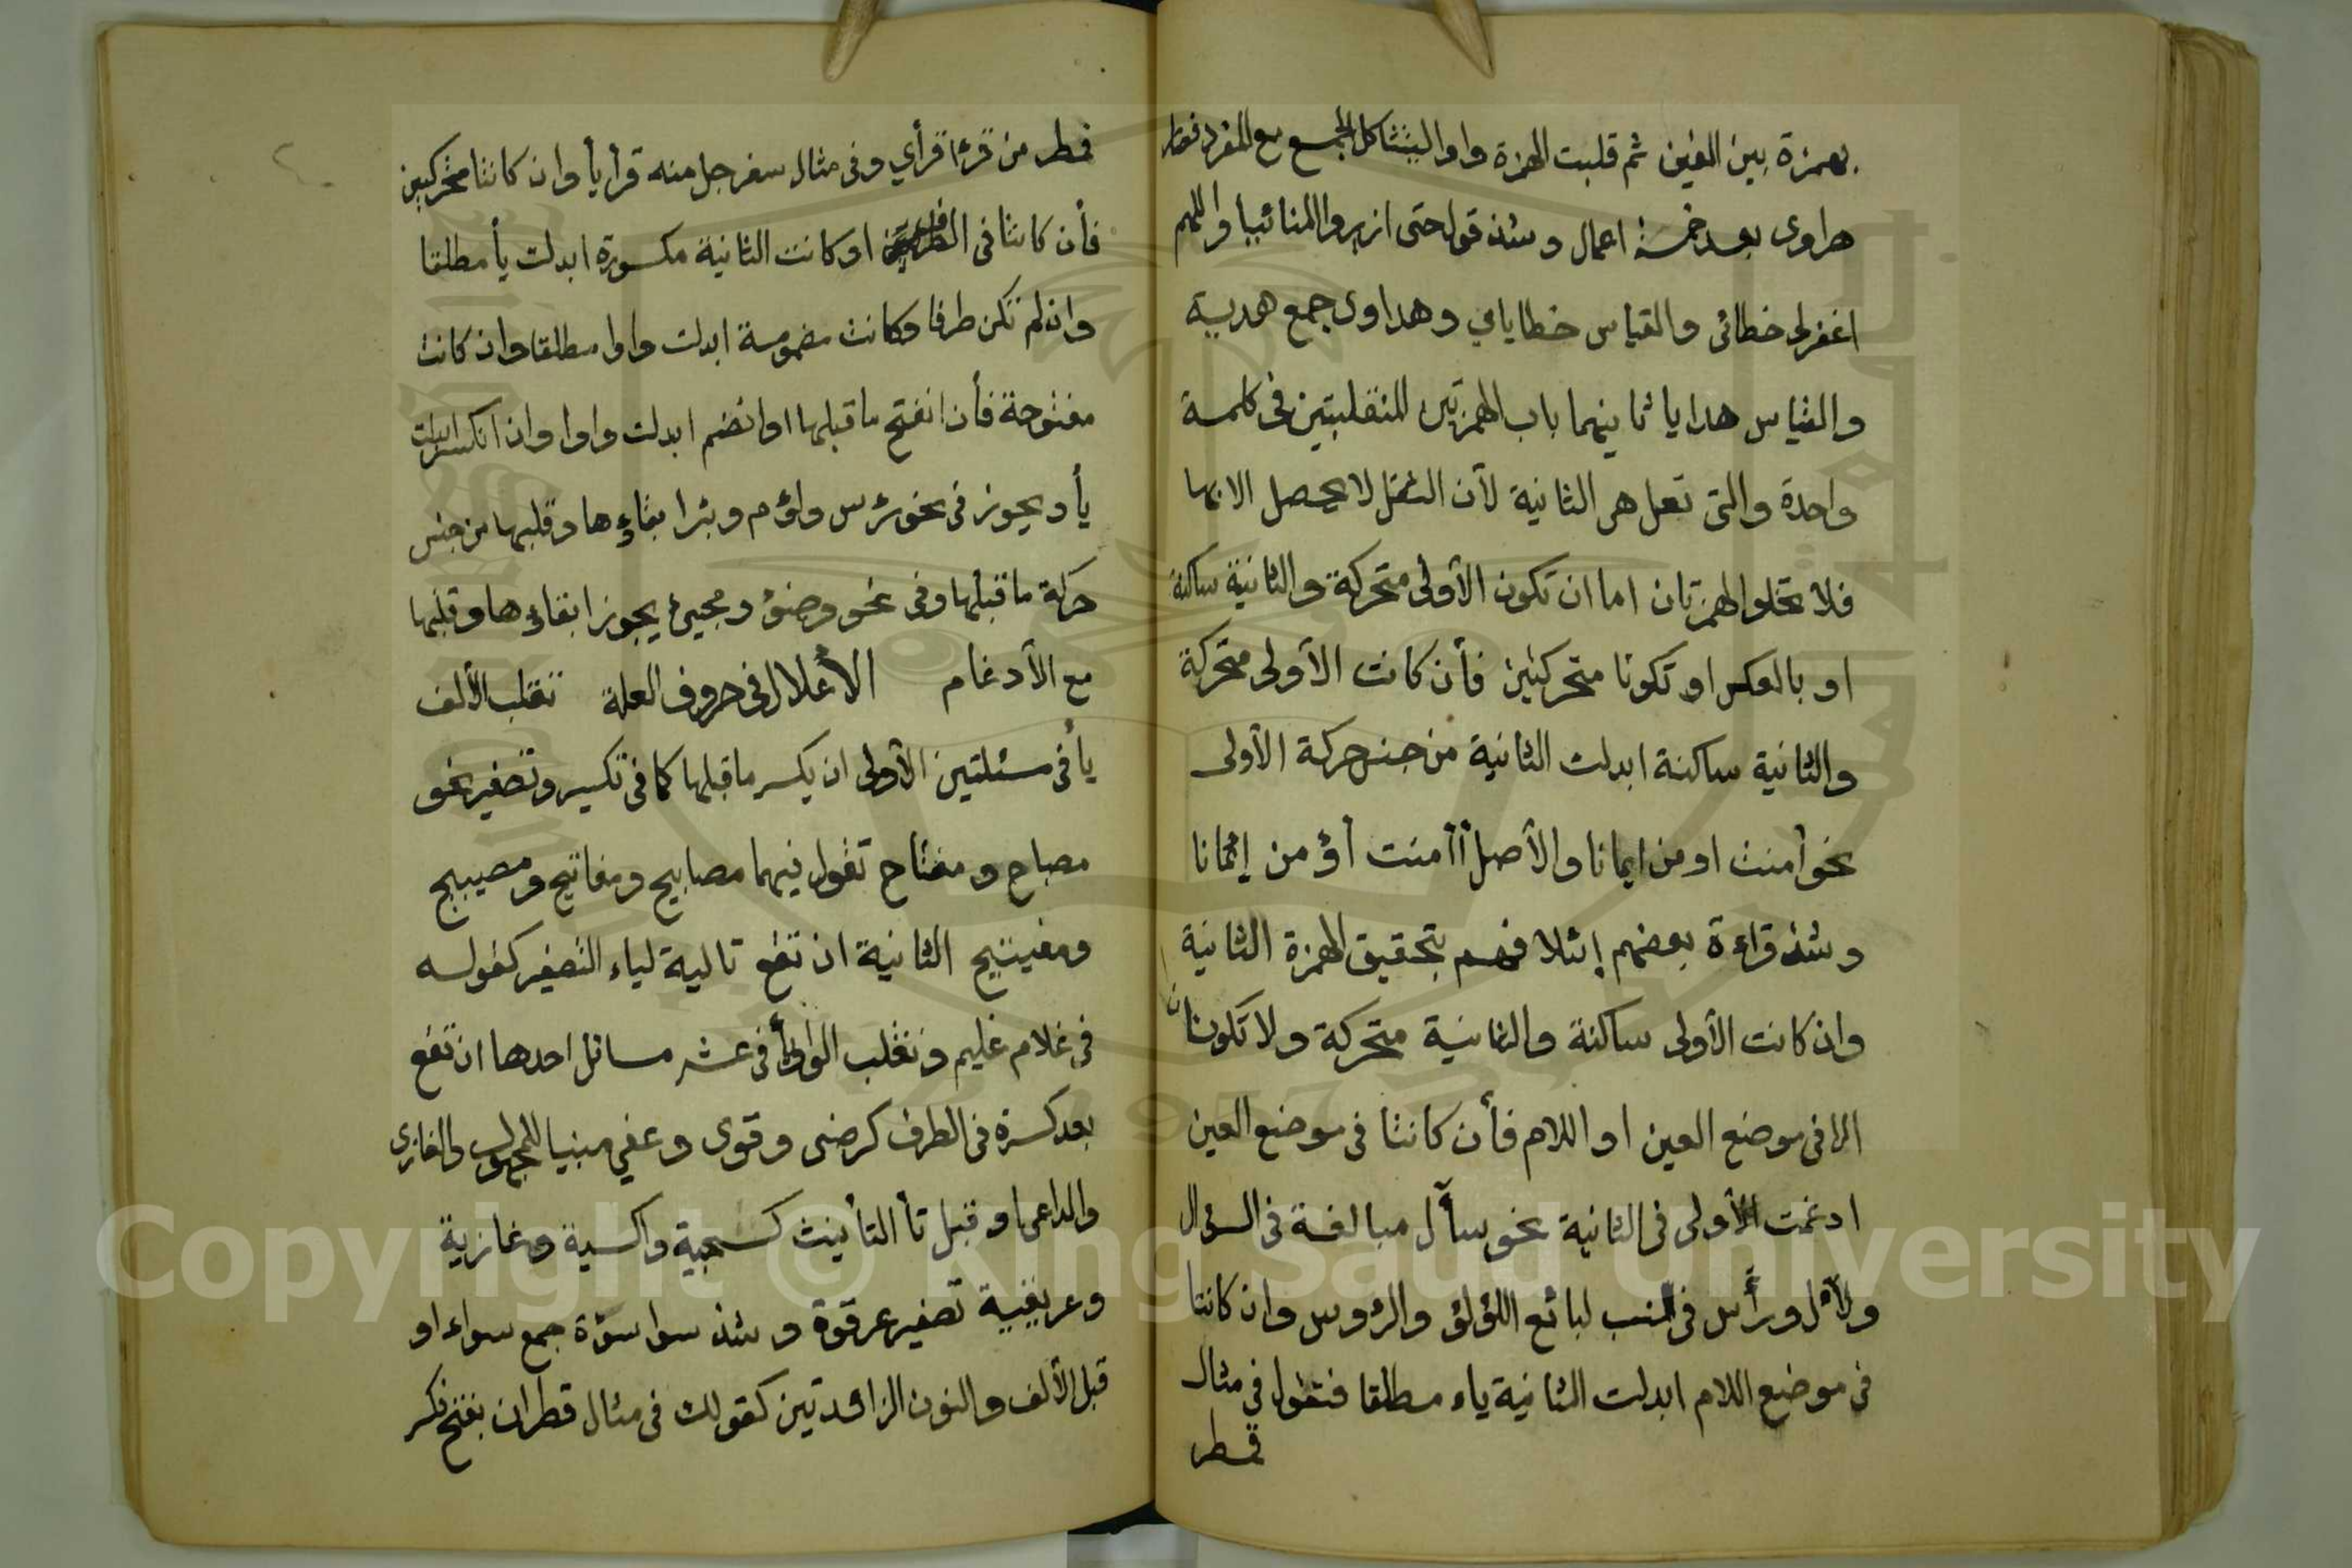 بهمزة بين الفين ثم قلبت الهمزة واوا ليتشاكل الجمع مع المفرد فصار
هراوى بعد خمسة اعمال وشذ قوله حتى ازيروا المنائيا واللهم
اغفرلى خطائى والقياس خطاياي وهداوى جمع هدية
والقياس هدايا ثانيهما باب الهمزتين المنقلبتين فى كلمة
واحدة والتى تعل هى الثانية لأن الثقل لا يحصل الا بها
فلا تخلوا الهمزتان اما ان تكون الأولى متحركة والثانية ساكنة
او بالعكس او تكونا متحركتين فأن كانت الأولى متحركة
والثانية ساكنة ابدلت الثانية من جنس حركة الأولى
نحو أمنت اومن ايمانا والأصل أأمنت أؤمن إئمانا
وشذ قراءة بعضهم إئلافهم بتحقيق الهمزة الثانية
وان كانت الأولى ساكنة والثانية متحركة ولا تكونان
الا فى موضع العين او اللام فأن كانتا فى موضع العين
ادغمت الأولى فى الثانية نحو سأّل مبالغة فى السؤال
ولأّل ورأّس فى النسب لبائع اللؤلؤ والرؤوس وان كانتا
فى موضع اللام ابدلت الثانية ياء مطلقا فتقول فى مثال
قمطر
قمطر من قرء اقرأي وفى مثال سفرجل منه قرأيأ وان كانتا متحركتين
فأن كانتا فى الطرف او كانت الثانية مكسورة ابدلت يأ مطلقا
وان لم تكن طرفا وكانت مضمومة ابدلت واوا مطلقا وان كانت
مفتوحة فأن انفتح ما قبلها او انضم ابدلت واوا وان انكسر ابدلت
يأ ويجوز فى نحو رأس ولؤم وبئر ابقاؤها وقلبها من جنس
حركة ما قبلها وفى نحو وضوؤ ومجيئ يجوز ابقاءها وقلبها
مع الأدغام الأعلال فى حروف العلة تقلب الألف
يأ فى مسئلتين الأولى ان يكسر ما قبلها كما فى تكسير وتصغير نحو
مصباح ومفتاح تقول فيهما مصابيح ومفاتيح ومصيبيح
ومفيتيح الثانية ان تقع تالية لياء التصغير كقوله
فى غلام غليم وتقلب الواو يأ فى عشر مسائل احدها ان تقع
بعد كسرة فى الطرف كرضى وقوى وعفي مبنيا للمجهول والغازى
والداعى او قبل تأ التأنيث كشجية واكسية وغازية
وعريقية تصغير عرقوة وشذ سواسوة جمع سواء او
قبل الألف والنون الزائدتين كقولك فى مثال قطران بفتح فكسر